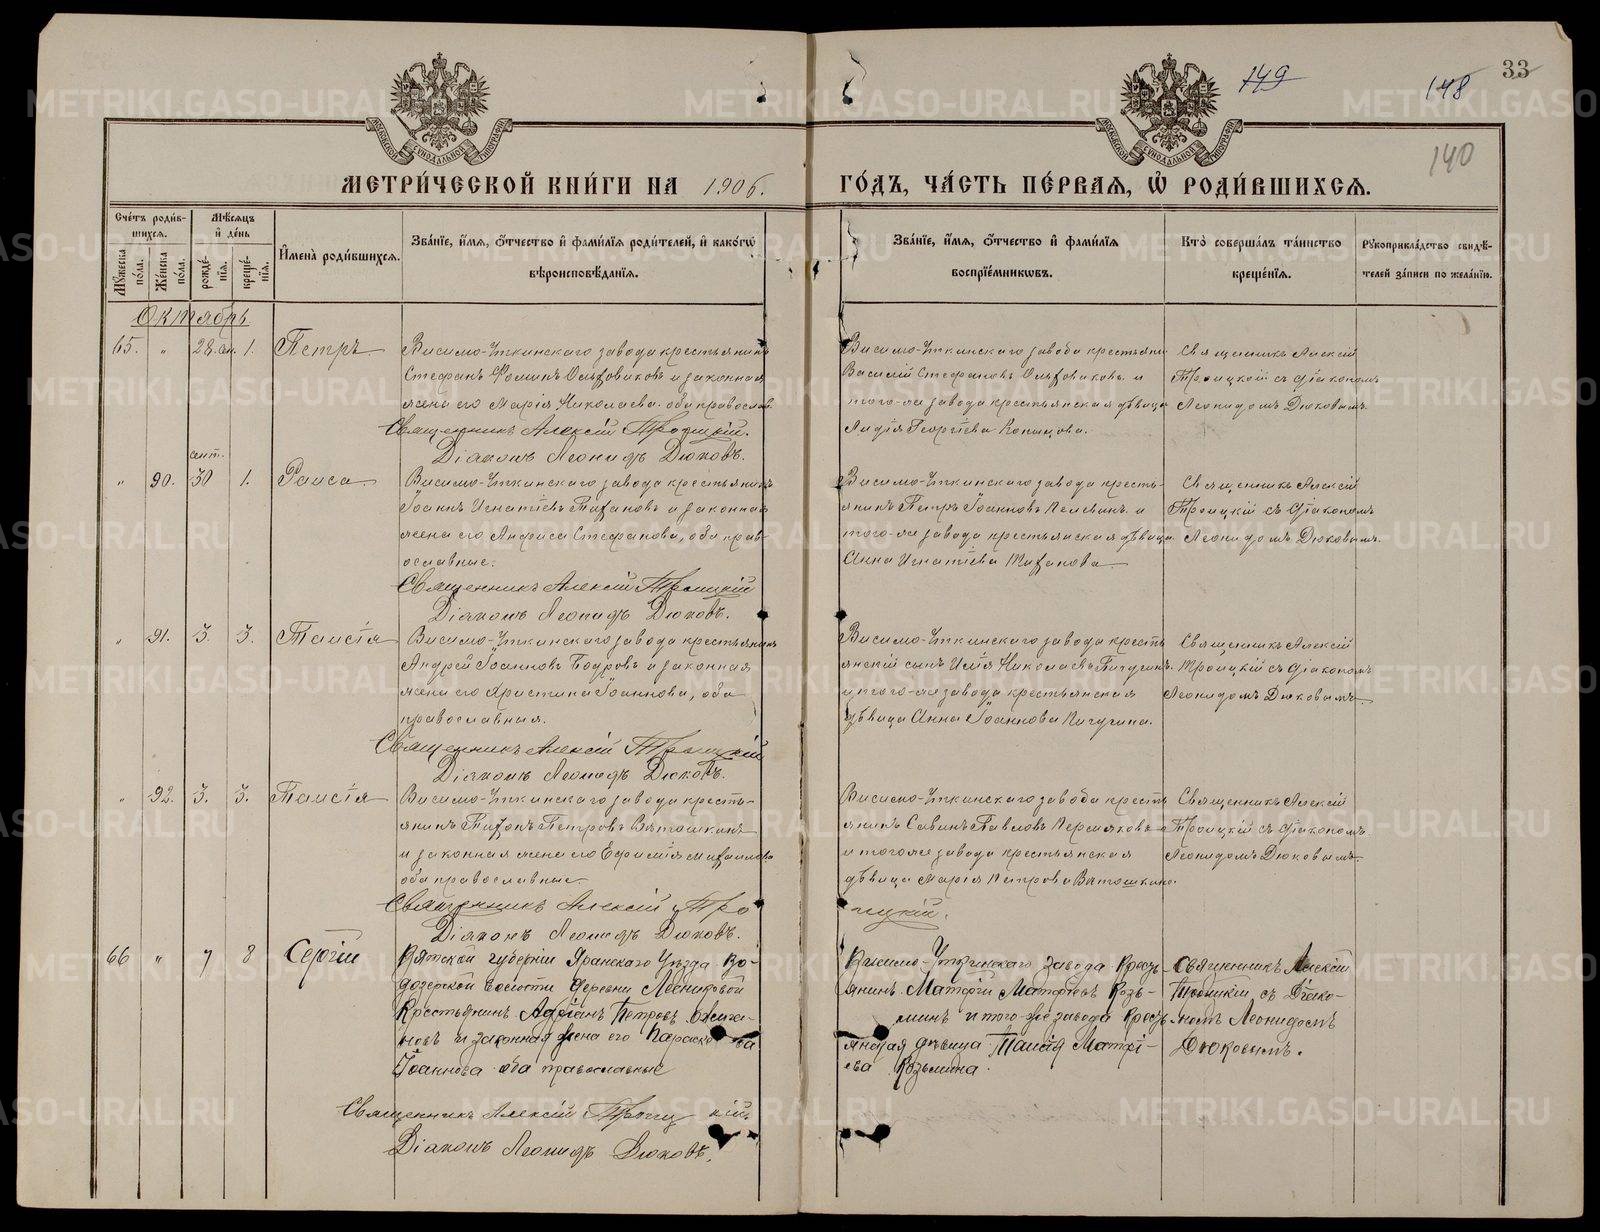 149
148
33
140
МЕТРИ́ЧЕСКОЙ КНИ́ГИ НА 1906.
ГО́ДЪ, ЧА́СТЬ ПЕ́РВАѦ, Ѡ҆ РОДИ́ВШИХСѦ.
Сче́тъ роди́в-
шихсѧ.
Мꙋ́жеска по́ла.
Же́нска по́ла.
Мѣ́сѧцъ
и҆ де́нь
рожде́-
нїѧ.
креще́-
нїѧ.
И҆мена̀ роди́вшихсѧ.
Зва́нїе, и҆́мѧ, ѻ҆́тчество и҆ фами́лїѧ роди́телей, и҆ како́гѡ
вѣроисповѣ́данїѧ.
Зва́нїе, и҆́мѧ, ѻ҆́тчество и҆ фами́лїѧ
воспрїе́мникѡвъ.
Кто̀ соверша́лъ та́инство
креще́нїѧ.
Рꙋкоприкла́дство свидѣ́-
телей за́писи по жела́нїю.
Октябрь
65. „ 28. сен. 1. Петръ
Висимо-Уткинскаго завода крестьянинъ
Стефанъ Фоминъ и законная
жена его Марія Николаева. оба православ.
Священникъ Алексій Троицкій.
Діаконъ Леонидъ Дюковъ.
Висимо-Уткинскаго завода крестьяни
Василій Стефановъ и
того-же завода крестьянская дѣвица
Лидія Георгіева Копыцова.
Священникъ Алексій
Троицкій съ діакономъ
Леонидомъ Дюковымъ.
„ 90. сент. 30 1. Раиса
Висимо-Уткинскаго завода крестьянинъ
Іоаннъ Игнатіевъ Тихановъ и законная
жена его Анфиса Стефанова, оба прав-
ославные.
Священникъ Алексій Троицкій
Діаконъ Леонидъ Дюковъ.
Висимо-Уткинскаго завода кресть-
янинъ Петръ Іоанновъ и
того-же завода крестьянская дѣвица
Анна Игнатіева Тиханова
Священникъ Алексій
Троицкій съ діакономъ
Леонидомъ Дюковымъ.
„ 91. 3. 3. Таисія
Висимо-Уткинскаго завода крестьянинъ
Андрей Іоанновъ Бодровъ и законная
жена его Христина Іоаннова, оба
православныя.
Священникъ Алексій Троицкій
Діаконъ Леонидъ Дюковъ.
Висимо-Уткинскаго завода кресть
янскій сынъ Илія Николаевъ Пичугинъ.
и того-же завода крестьянская
дѣвица Анна Іоаннова Пичугина.
Священникъ Алексій
Троицкій съ діакономъ
Леонидомъ Дюковымъ
„ 92. 3. 3. Таисія
Висимо-Уткинскаго завода кресть-
янинъ Тихонъ Петровъ Ватошкинъ
и законная жена его Евфимія Михаилова
оба православные
Священникъ Алексій Тро
ицкій.
Діаконъ Леонидъ Дюковъ.
Висимо-Уткинскаго завода кресть
янинъ Савинъ Павловъ Пермяковъ
и тогоже завода крестьянская
дѣвица Марія Петрова Ватошкина.
Священникъ Алексій
Троицкій съ діакономъ
Леонидомъ Дюковымъ
66 „ 7 8 Сергій
Вятской губерніи Яранскаго Уѣзда Во-
дозерской волости деревни Леонидовой
Крестьянинъ Адріанъ Петровъ Ожига-
новъ и законная жена его Параскева
Іоаннова оба православные
Священникъ Алексій Троицкій.
Діаконъ Леонидъ Дюковъ.
Висимо-Уткинскаго завода Кресть-
янинъ Матфій Матфіевъ Козь-
минъ и того-же завода Кресть-
янская дѣвица Таисія Матфі-
ева Козьмина.
Священникъ Алексій
Троицкій съ Діако-
номъ Леонидомъ
Дюковымъ.
METRIKI.GASO-URAL.RU